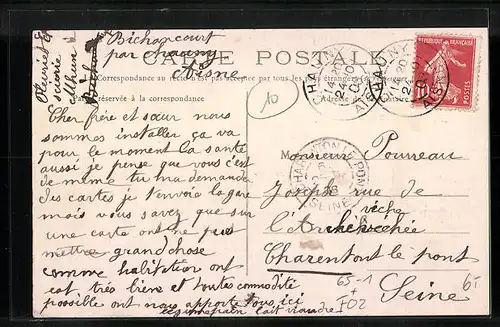 Bichancourt
par Chauny
Aisne
CARTE POSTALE
Correspondance au recto n'est pas acceptée par tous les pays étrangers
Partie réservée à la correspondance
CHAUNY
AISNE
CHAUNY
AISNE
REPUBLIQUE FRANÇAISE
POSTES
10
10
Cher frère et sœur nous
sommes installer ça va
pour le moment la santé
aussi je pense que vous s'est
de même tu ma demander
des cartes je t'envoie la gare
mais vous savez que sur
une carte ont ne peus
mettre grand chose
comme habitation ont
est très biene et toutes commodité
possible ont nous apporte tous ici
légumes pain lait viande
Monsieur Pouveau
Joseph rue de
l'Archevêchée
vêche
Charentont le pont
Seine
CHARENTON LE PONT
SEINE
65-1
F02